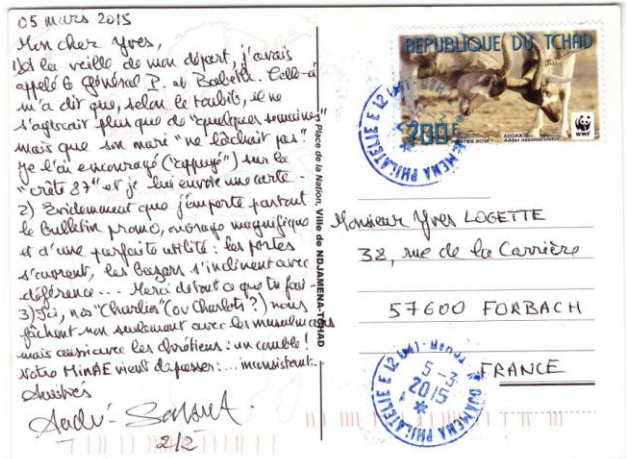 05 mars 2015
Mon cher Yves,
1) À la veille de mon départ, j'avais
appelé le Général P. et Babeth. Celle-ci
m'a dit que, selon le toubib, il ne
s'agissait plus que de "quelques semaines"
mais que son mari "ne lâchait pas".
Je l'ai encouragé ("appuyé") sur la
"crête 87" et je lui envoie une carte.
2) Evidemment que j'emporte partout
le Bulletin promo, ouvrage magnifique
et d'une parfaite utilité : les portes
s'ouvrent, les Gazars s'inclinent avec
déférence... Merci de tout ce que tu fais.
3) Ici, nos "Charlies" (ou Charlots ?) nous
fâchent non seulement avec les musulmans
mais aussi avec les chrétiens : un comble !
Notre MinAE vient de passer : ... inconsistant.
Amitiés
André
2/2
Place de la Nation, Ville de NDJAMENA-TCHAD
REPUBLIQUE DU TCHAD
700F
ADDAX
Addax nasomaculatus
WWF
NDJAMENA PHILATELIE E 12 (M) · TCHAD
Monsieur Yves LOGETTE
38, rue de la Carrière
57600 FORBACH
FRANCE
NDJAMENA PHILATELIE E 12 (M) · TCHAD
5-3
2015